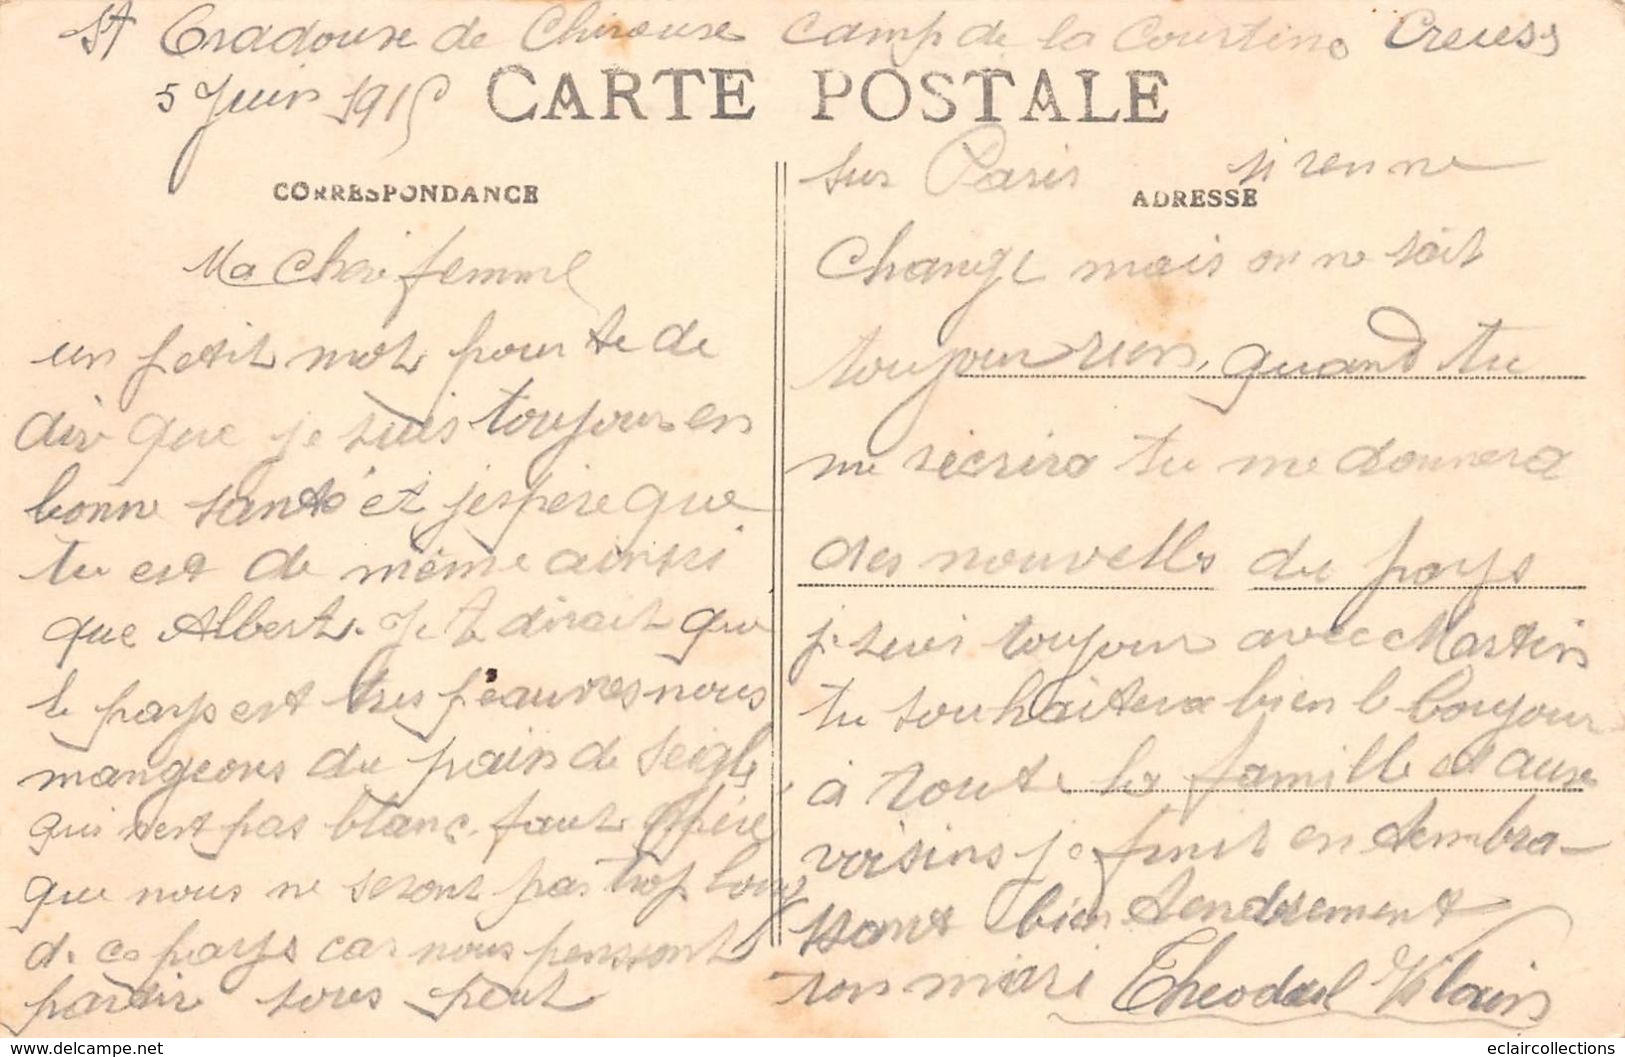 St Oradouse de Chirouse Camp de la Courtine Creuse
5 Juin 1915
CARTE POSTALE
CORRESPONDANCE
Ma Cher femme
un petit mot pour te de
dire que je suis toujour en
bonne santé et j'espère que
tu est de même ainsi
que Albert. Je te dirait que
le pays est très peauvres nous
mangeons du pain de seigle
qui n'est pas blanc. faut
que nous ne seront pas trop long
de ce pays car nous penssont
partir sous peut
ADRESSE
sur Paris si ren ne
change mais on ne sait
toujour rien, quand tu
me récrira tu me donnera
des nouvelles du pays
je suis toujour avec Martin
tu souhaitera bien le bonjour
à toute la famille et aux
voisins je finit en t'embra-
ssant bien tendrement
ton mari Théodul Vilain
eclaircollections.com